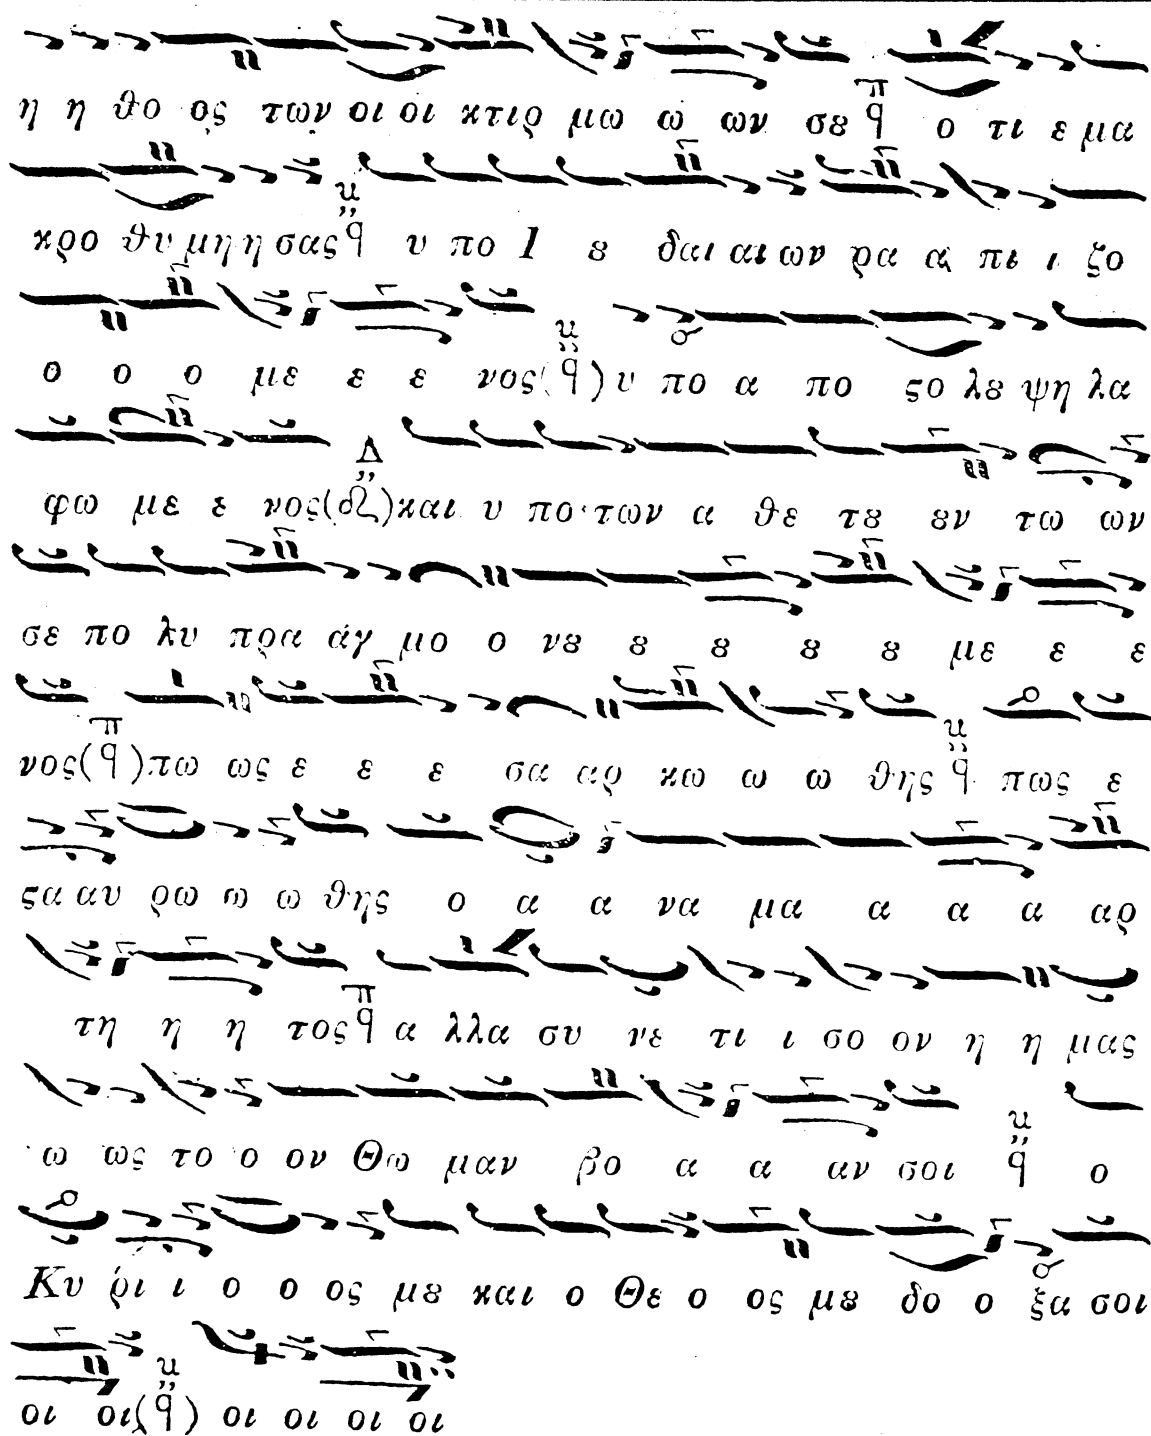 η η θο ος των οι οι κτιρ μω ω ων σȣ π ϥ ο τι ε μα
κρο θυ μη η σας ϥ υ πο Ι ȣ δαι αι ων ρα α πι ι ζο
ο ο ο με ε ε νος (ϥ) υ πο α πο ϛο λȣ ψη λα
φω με ε νος ( Δ ) και υ πο των α θε τȣ ȣν τω ων
σε πο λυ πρα άγ μο ο νȣ ȣ ȣ ȣ ȣ με ε ε
νος (π ϥ) πω ως ε ε ε σα αρ κω ω ω θης ϥ πως ε
ϛα αυ ρω ω ω θης ο α α να μα α α α αρ
τη η η τος π ϥ α λλα συ νε τι ι σο ον η η μας
ω ως το ο ον Θω μαν βο α α αν σοι ϥ ο
Κυ ρι ι ο ο ος μȣ και ο Θε ο ος μȣ δο ο ξα σοι
οι οι (ϥ) οι οι οι οι